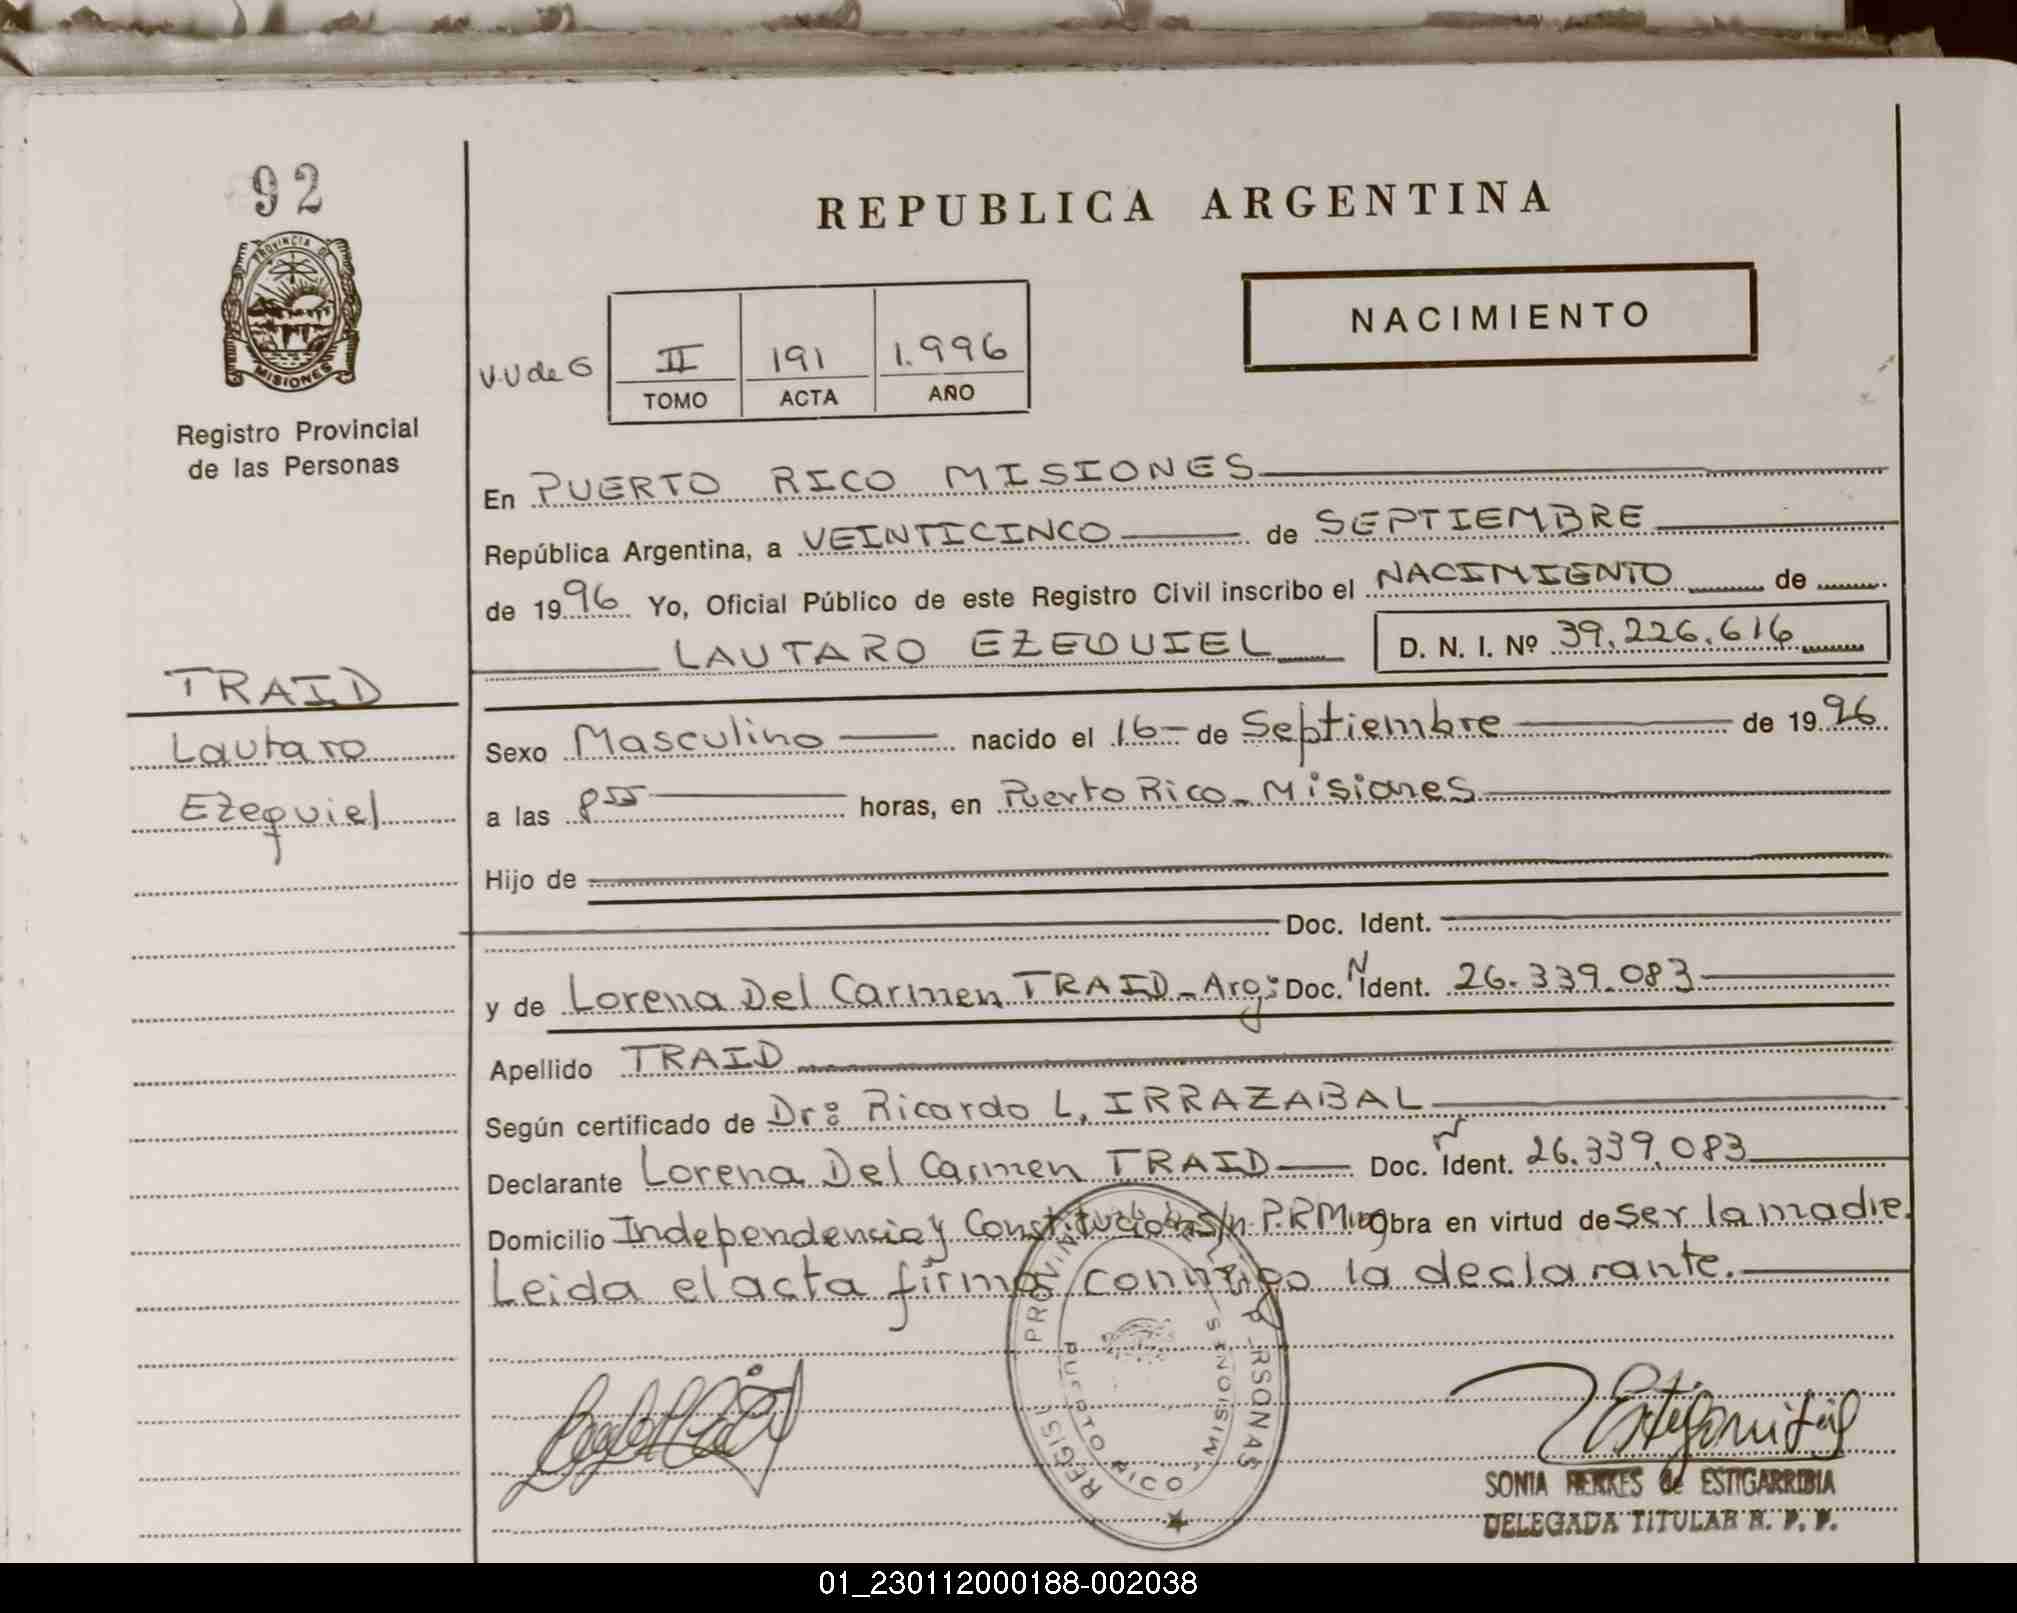 92
REPUBLICA ARGENTINA
PROVINCIA DE
MISIONES
NACIMIENTO
V.U de G
II 191 1.996
TOMO ACTA AÑO
Registro Provincial
de las Personas
En PUERTO RICO MISIONES
República Argentina, a VEINTICINCO de SEPTIEMBRE
de 1996 Yo, Oficial Público de este Registro Civil inscribo el NACIMIENTO de
LAUTARO EZEQUIEL D. N. I. Nº 39.226.616
TRAID
Lautaro
Ezequiel
Sexo Masculino nacido el 16 de Septiembre de 1996
a las 8 55 horas, en Puerto Rico - Misiones
Hijo de
Doc. Ident.
y de Lorena Del Carmen TRAID - Arg: Doc. N Ident. 26.339.083
Apellido TRAID
Según certificado de Dr: Ricardo L. IRRAZABAL
Declarante Lorena Del Carmen TRAID Doc. N Ident. 26.339.083
Domicilio Independencia y Constitucion S/n P.R Obra en virtud de ser la madre.
Leida el acta firma conmigo la declarante.
PUERTO RICO - MISIONES
SONIA de ESTIGARRIBIA
DELEGADA TITULAR R. P. P.
01_230112000188-002038